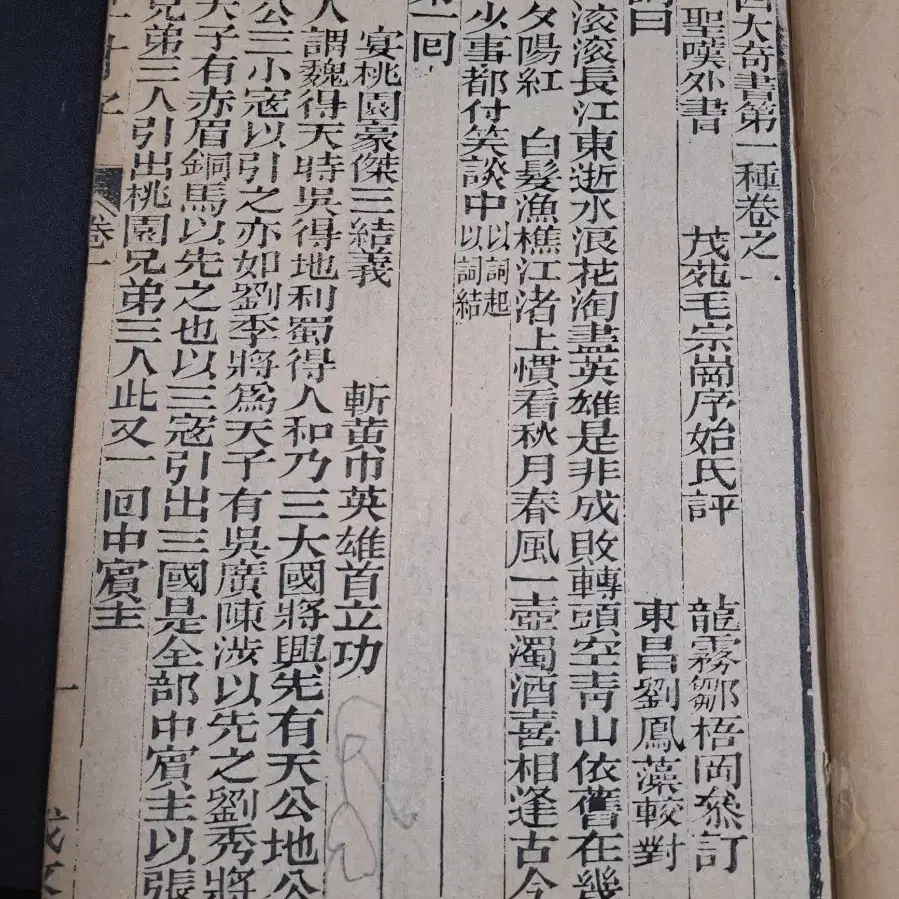 四大奇書第一種卷之一
聖嘆外書 茂苑毛宗崗序始氏評 龍霧鄒梧岡叅訂
詞曰 東昌劉鳳藻較對
滾滾長江東逝水浪花淘盡英雄是非成敗轉頭空青山依舊在幾
夕陽紅 白髮漁樵江渚上慣看秋月春風一壺濁酒喜相逢古今
少事都付笑談中 以詞起
以詞結
第一回
宴桃園豪傑三結義 斬黃巾英雄首立功
人謂魏得天時吳得地利蜀得人和乃三大國將興先有天公地公
公三小寇以引之亦如劉季將爲天子有吳廣陳涉以先之劉秀將
天子有赤眉銅馬以先之也以三寇引出三國是全部中賓主以張
兄弟三人引出桃園兄弟三人此又一回中賓主
卷一 一